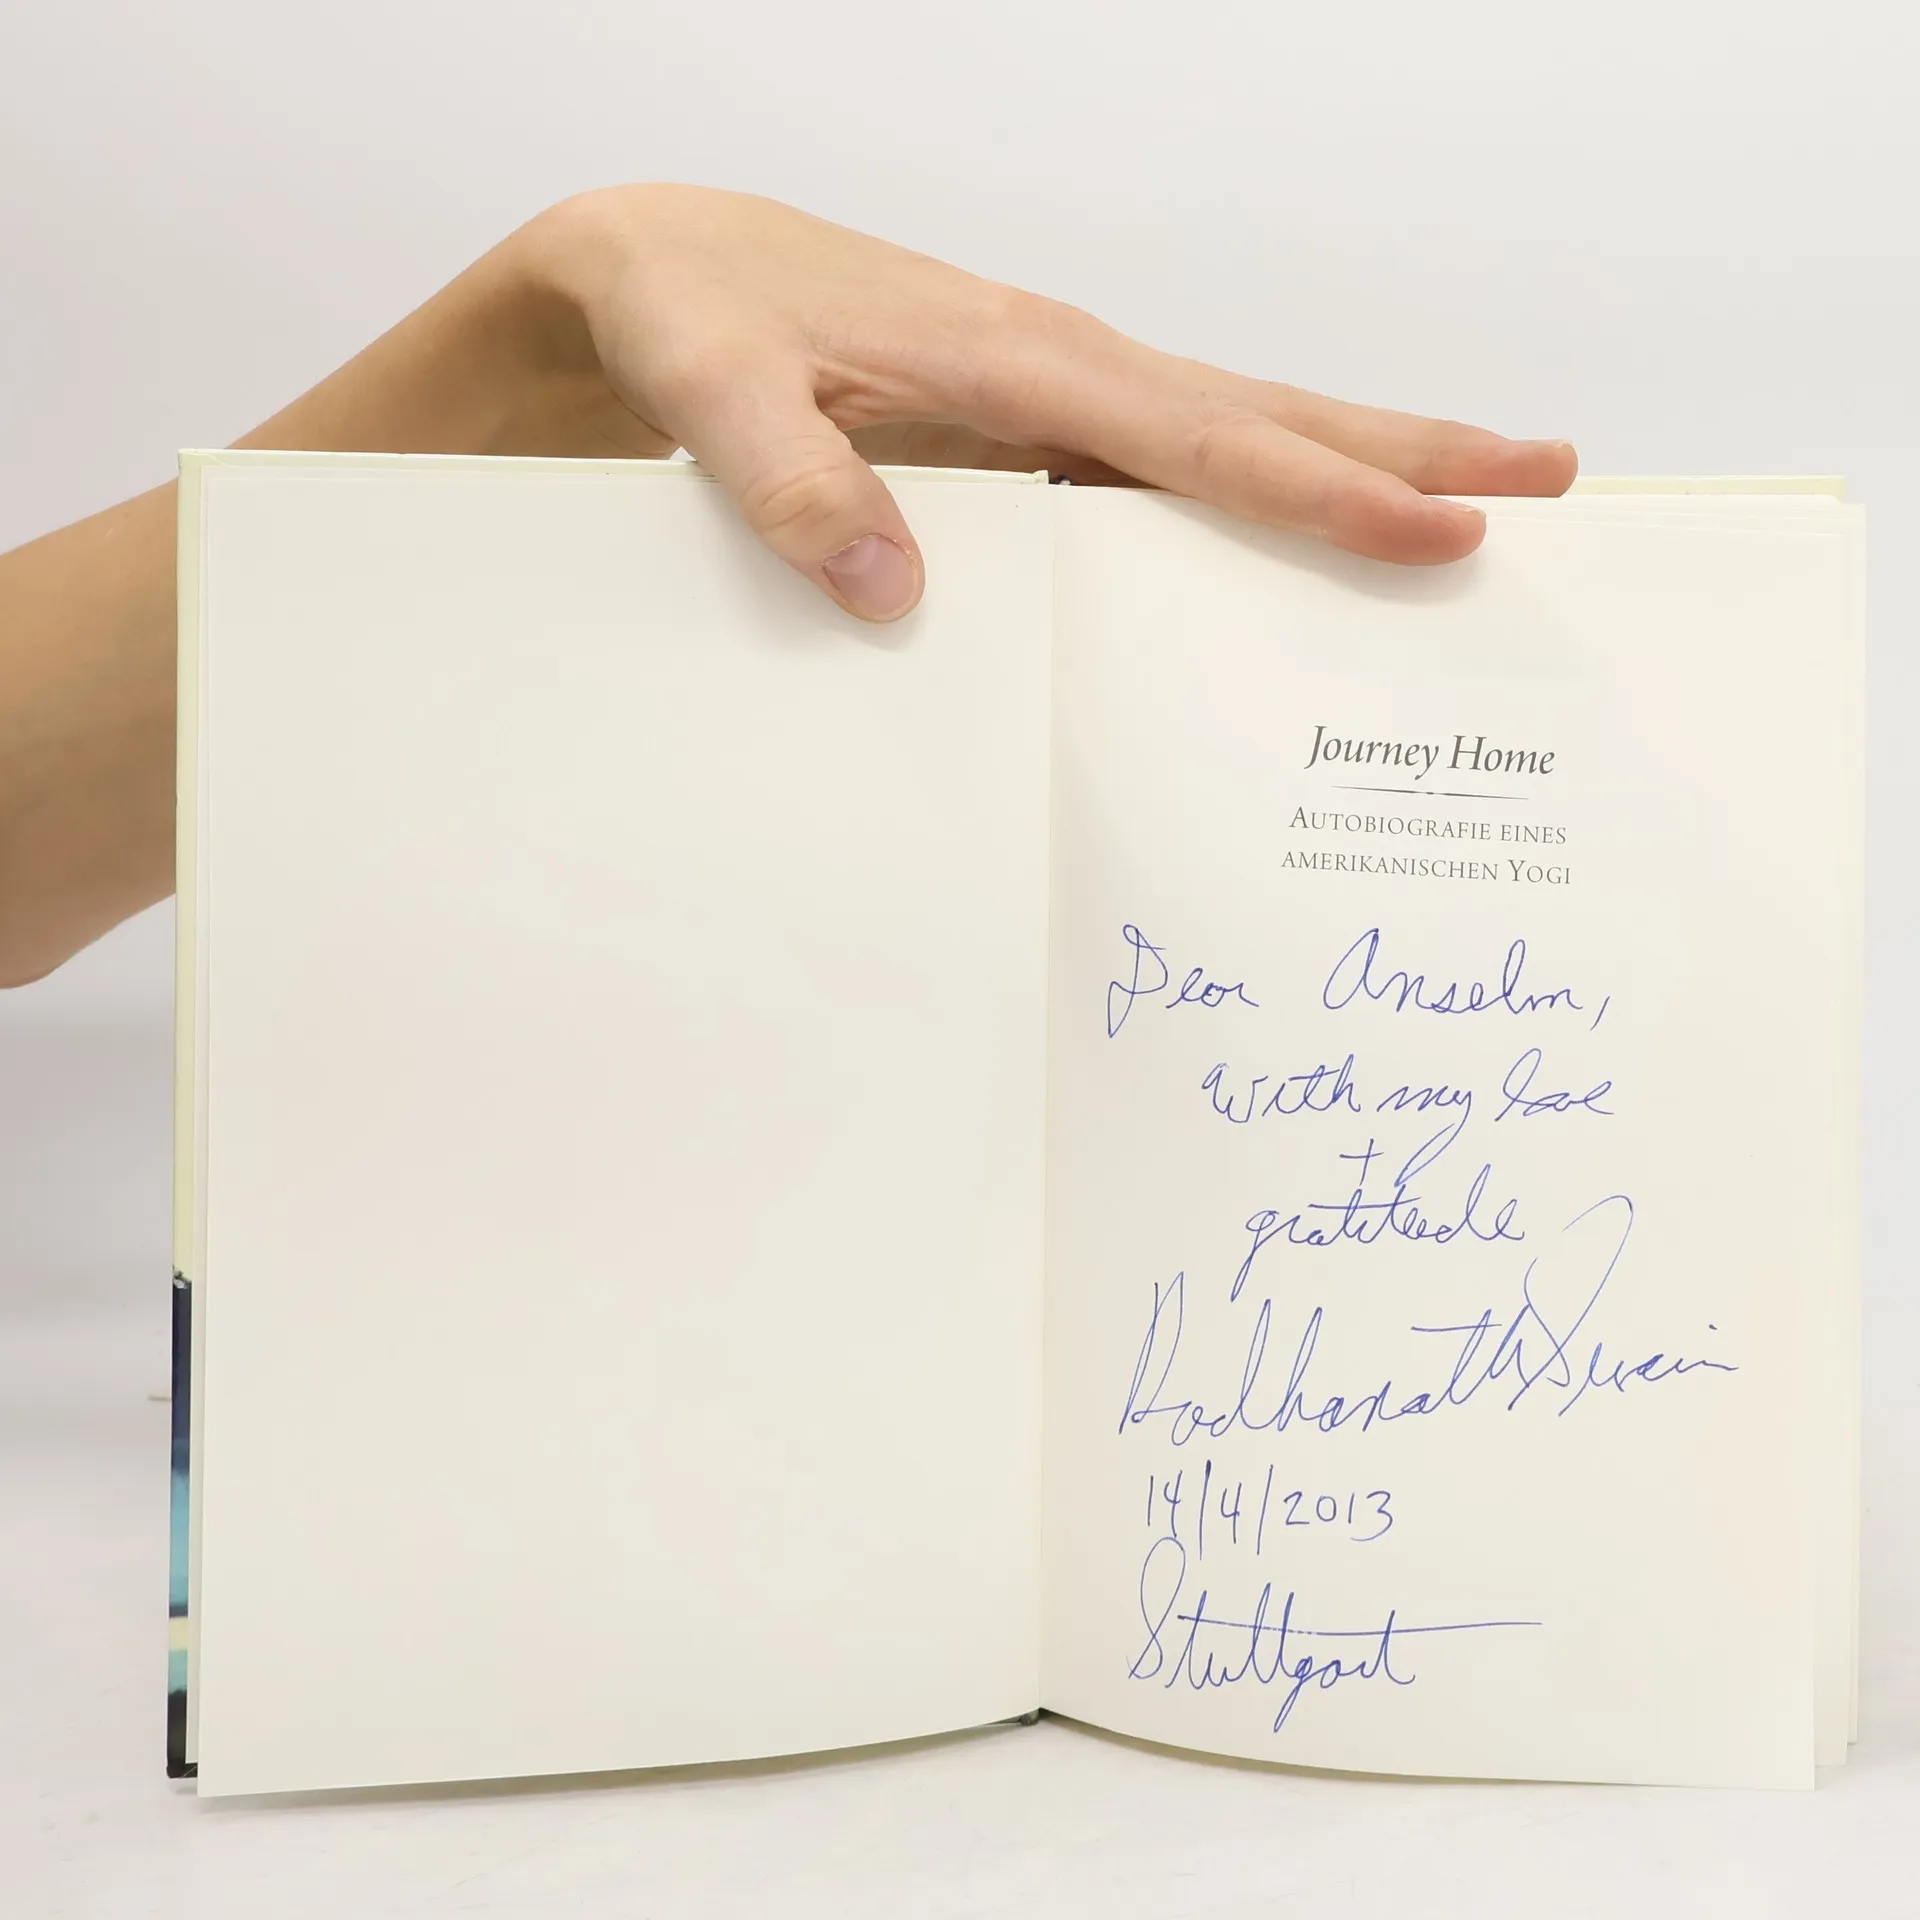 Journey Home
Autobiografie eines
amerikanischen Yogi
Dear Anselm,
With my love
+
gratitude
Radhanath Swami
14/4/2013
Stuttgart